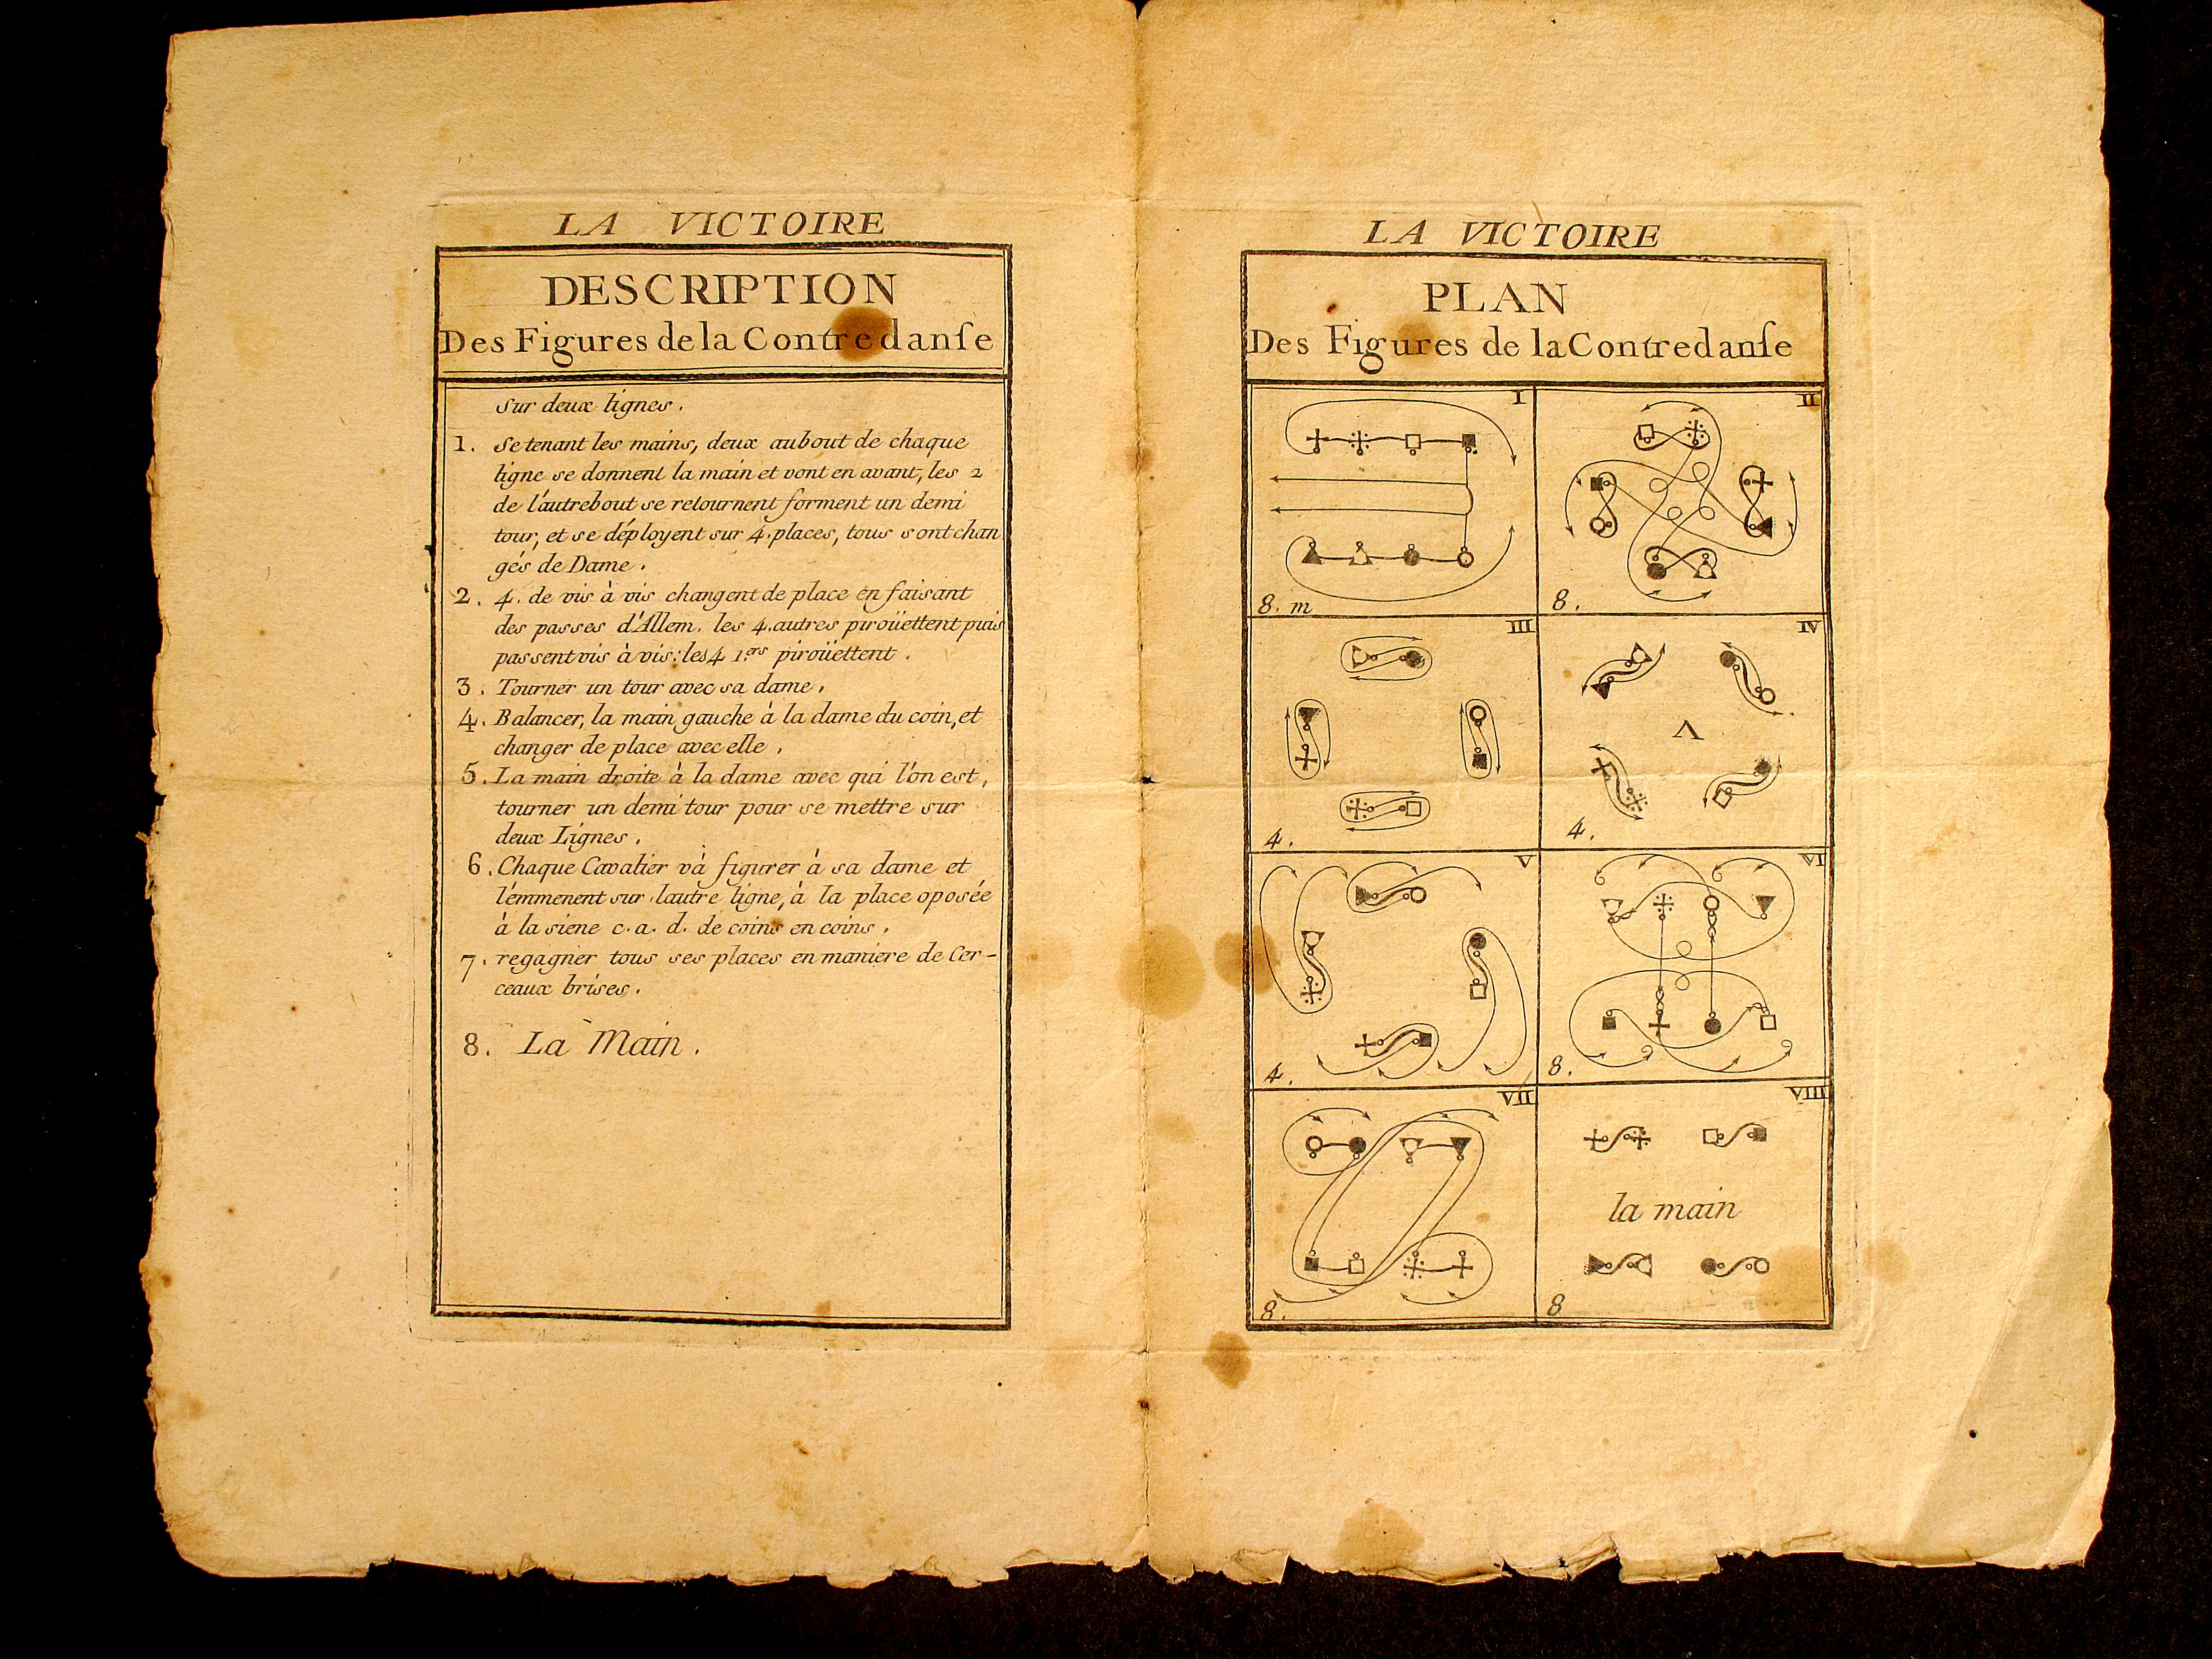 LA VICTOIRE
DESCRIPTION
Des Figures de la Contredanſe
Sur deux lignes.
1. Se tenant les mains, deux au bout de chaque
ligne se donnent la main et vont en avant, les 2
de l'autre bout se retournent forment un demi
tour, et se déployent sur 4. places, tous sont chan
gés de Dame.
2. 4. de vis à vis changent de place en faisant
des passes d'Allem. les 4. autres piroüettent puis
passent vis à vis: les 4 1.ers piroüettent.
3. Tourner un tour avec sa dame.
4. Balancer, la main gauche à la dame du coin, et
changer de place avec elle.
5. La main droite à la dame avec qui l'on est,
tourner un demi tour pour se mettre sur
deux Lignes.
6. Chaque Cavalier và figurer à sa dame et
l'emmenent sur lautre ligne, à la place oposée
à la siene c. a. d. de coins en coins.
7. regagner tous ses places en maniere de Cer-
ceaux brisés.
8. La Main.
LA VICTOIRE
PLAN
Des Figures de la Contredanſe
I
8. m
II
8.
III
4.
IV
V
4.
V
4.
VI
8.
VII
8.
VIII
la main
8